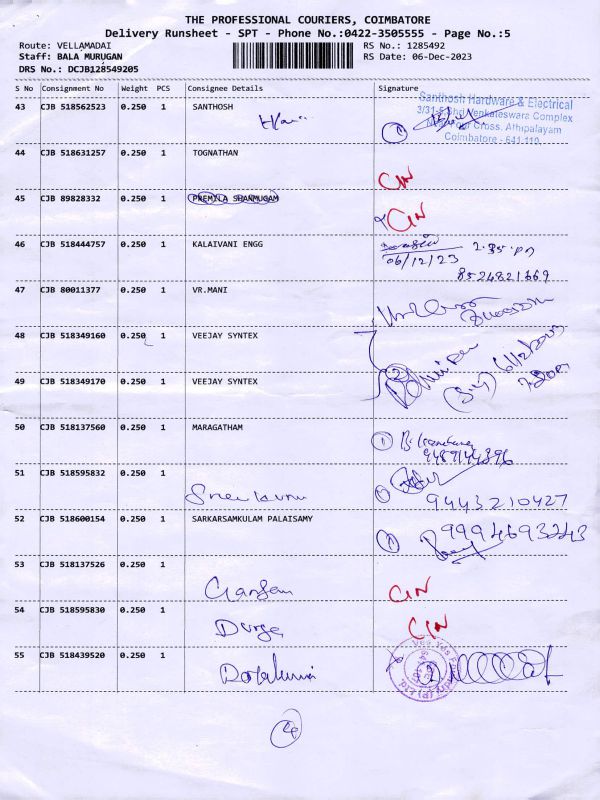 THE PROFESSIONAL COURIERS, COIMBATORE
Delivery Runsheet - SPT - Phone No.:0422-3505555 - Page No.:5
Route: VELLAMADAI RS No.: 1285492
Staff: BALA MURUGAN RS Date: 06-Dec-2023
DRS No.: DCJB128549205
S No Consignment No Weight PCS Consignee Details Signature
43 CJB 518562523 0.250 1 SANTHOSH
Santhosh Hardware & Electrical
Venkateswara Complex
Cross, Athipalayam
Coimbatore - 641 110
44 CJB 518631257 0.250 1 TOGNATHAN
CIN
45 CJB 89828332 0.250 1 PREMILA SHANMUGAM
CIN
46 CJB 518444757 0.250 1 KALAIVANI ENGG
2.35.pm
06/12/23
8524821669
47 CJB 80011377 0.250 1 VR.MANI
48 CJB 518349160 0.250 1 VEEJAY SYNTEX
49 CJB 518349170 0.250 1 VEEJAY SYNTEX
50 CJB 518137560 0.250 1 MARAGATHAM
1
9489144396
51 CJB 518595832 0.250 1
1 9443210427
52 CJB 518600154 0.250 1 SARKARSAMKULAM PALAISAMY
1 9994693243
53 CJB 518137526 0.250 1
CIN
54 CJB 518595830 0.250 1
Durga CIN
55 CJB 518439520 0.250 1